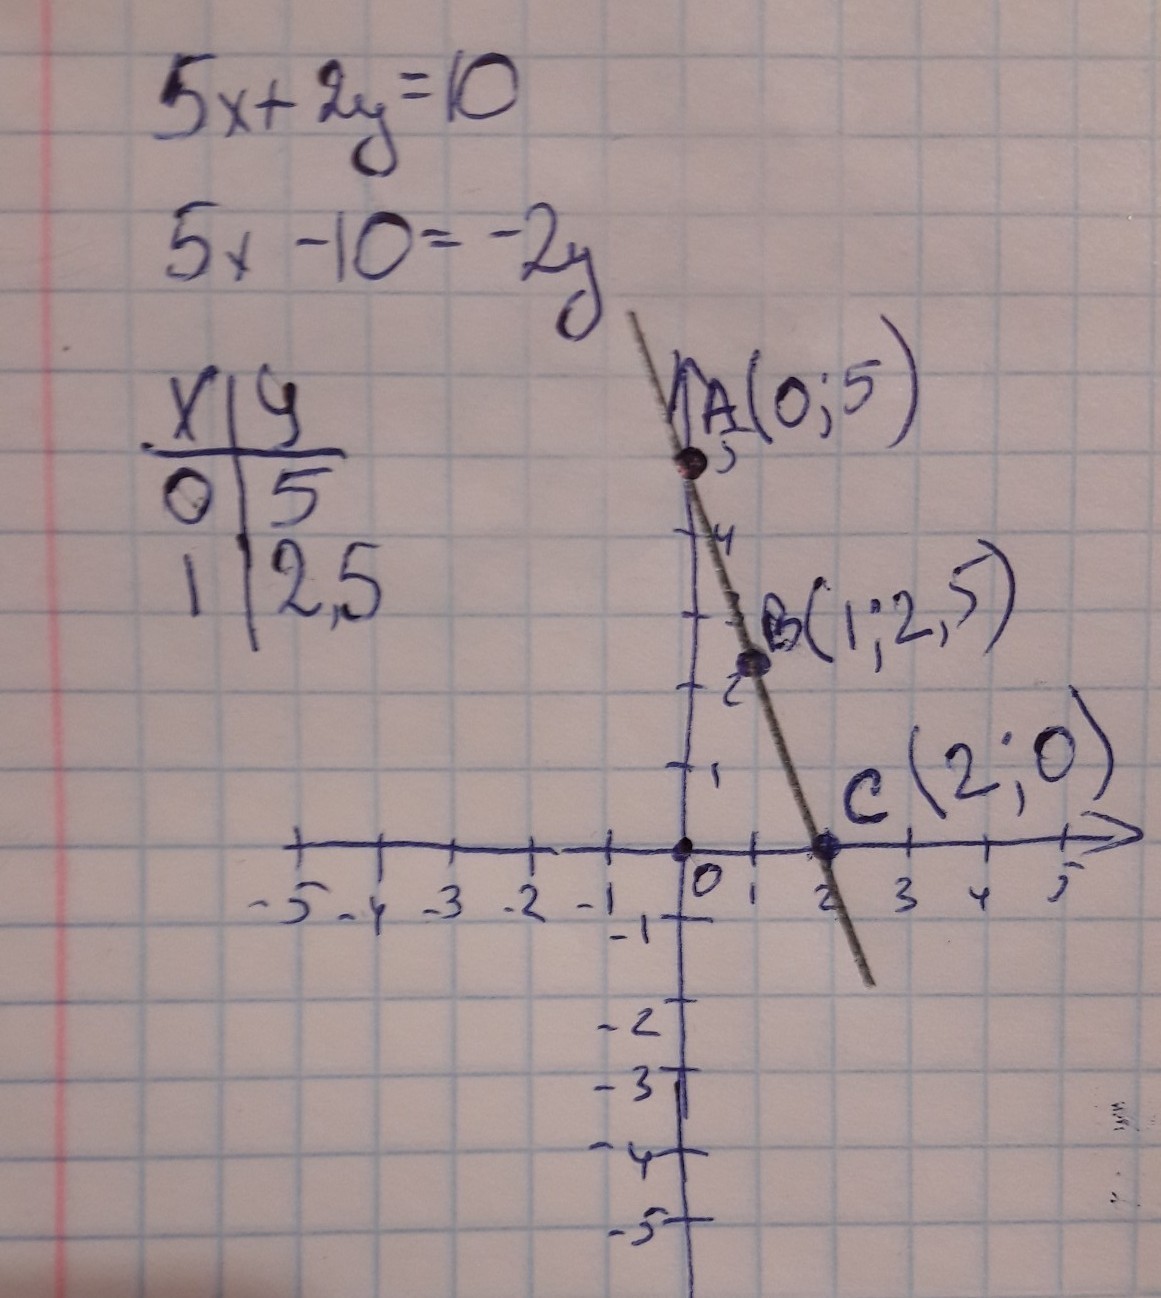 5x+2y=10
5x-10=-2y
x | y
0 | 5
1 | 2,5
A(0;5)
5
4
3
B(1;2,5)
2
C(2;0)
1
-5 -4 -3 -2 -1 0 1 2 3 4 5
-1
-2
-3
-4
-5